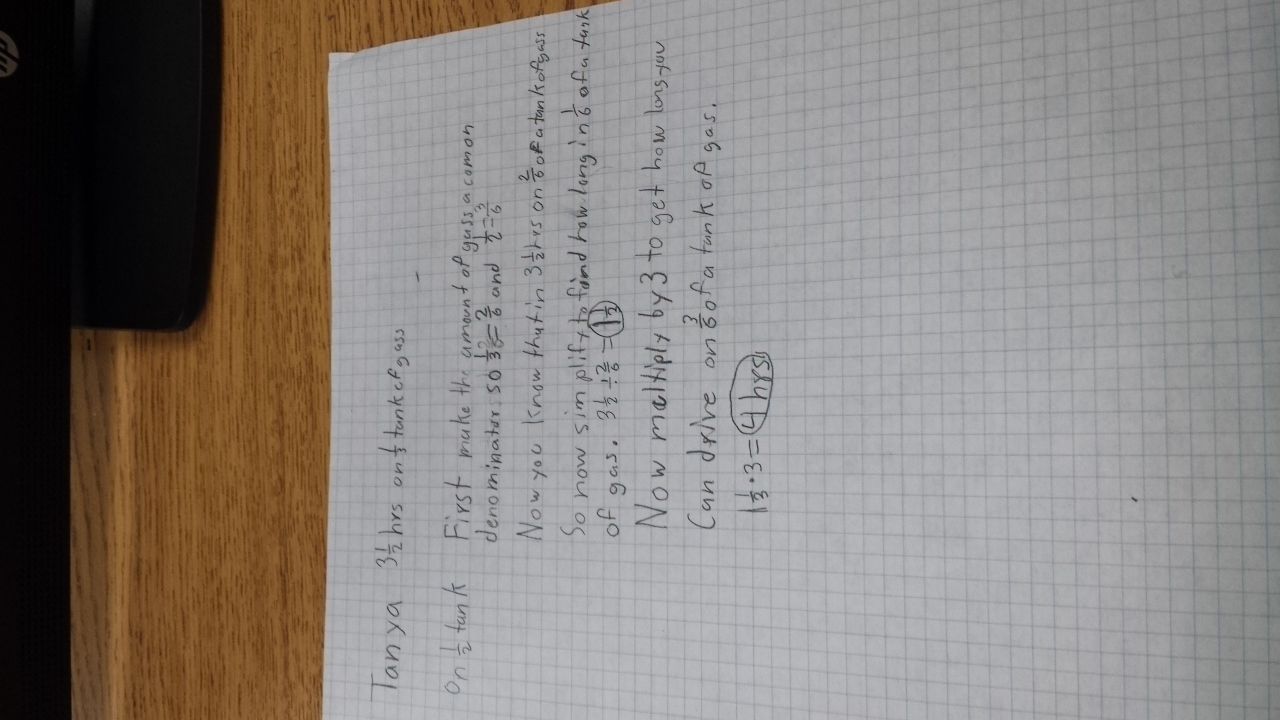 hp
Tanya 3 1/2 hrs on 1/3 tank of gass
on 1/2 tank First make the amount of gass a comon
denominator. so 1/3 = 2/6 and 1/2 = 3/6
Now you know that in 3 1/2 hrs on 2/6 of a tank of gass
So now simplify to find how long in 1/6 of a tank
of gas. 3 1/2 ÷ 2/6 = 1 1/3
Now multiply by 3 to get how long you
Can drive on 3/6 of a tank of gas.
1 1/3 · 3 = 4 hrs